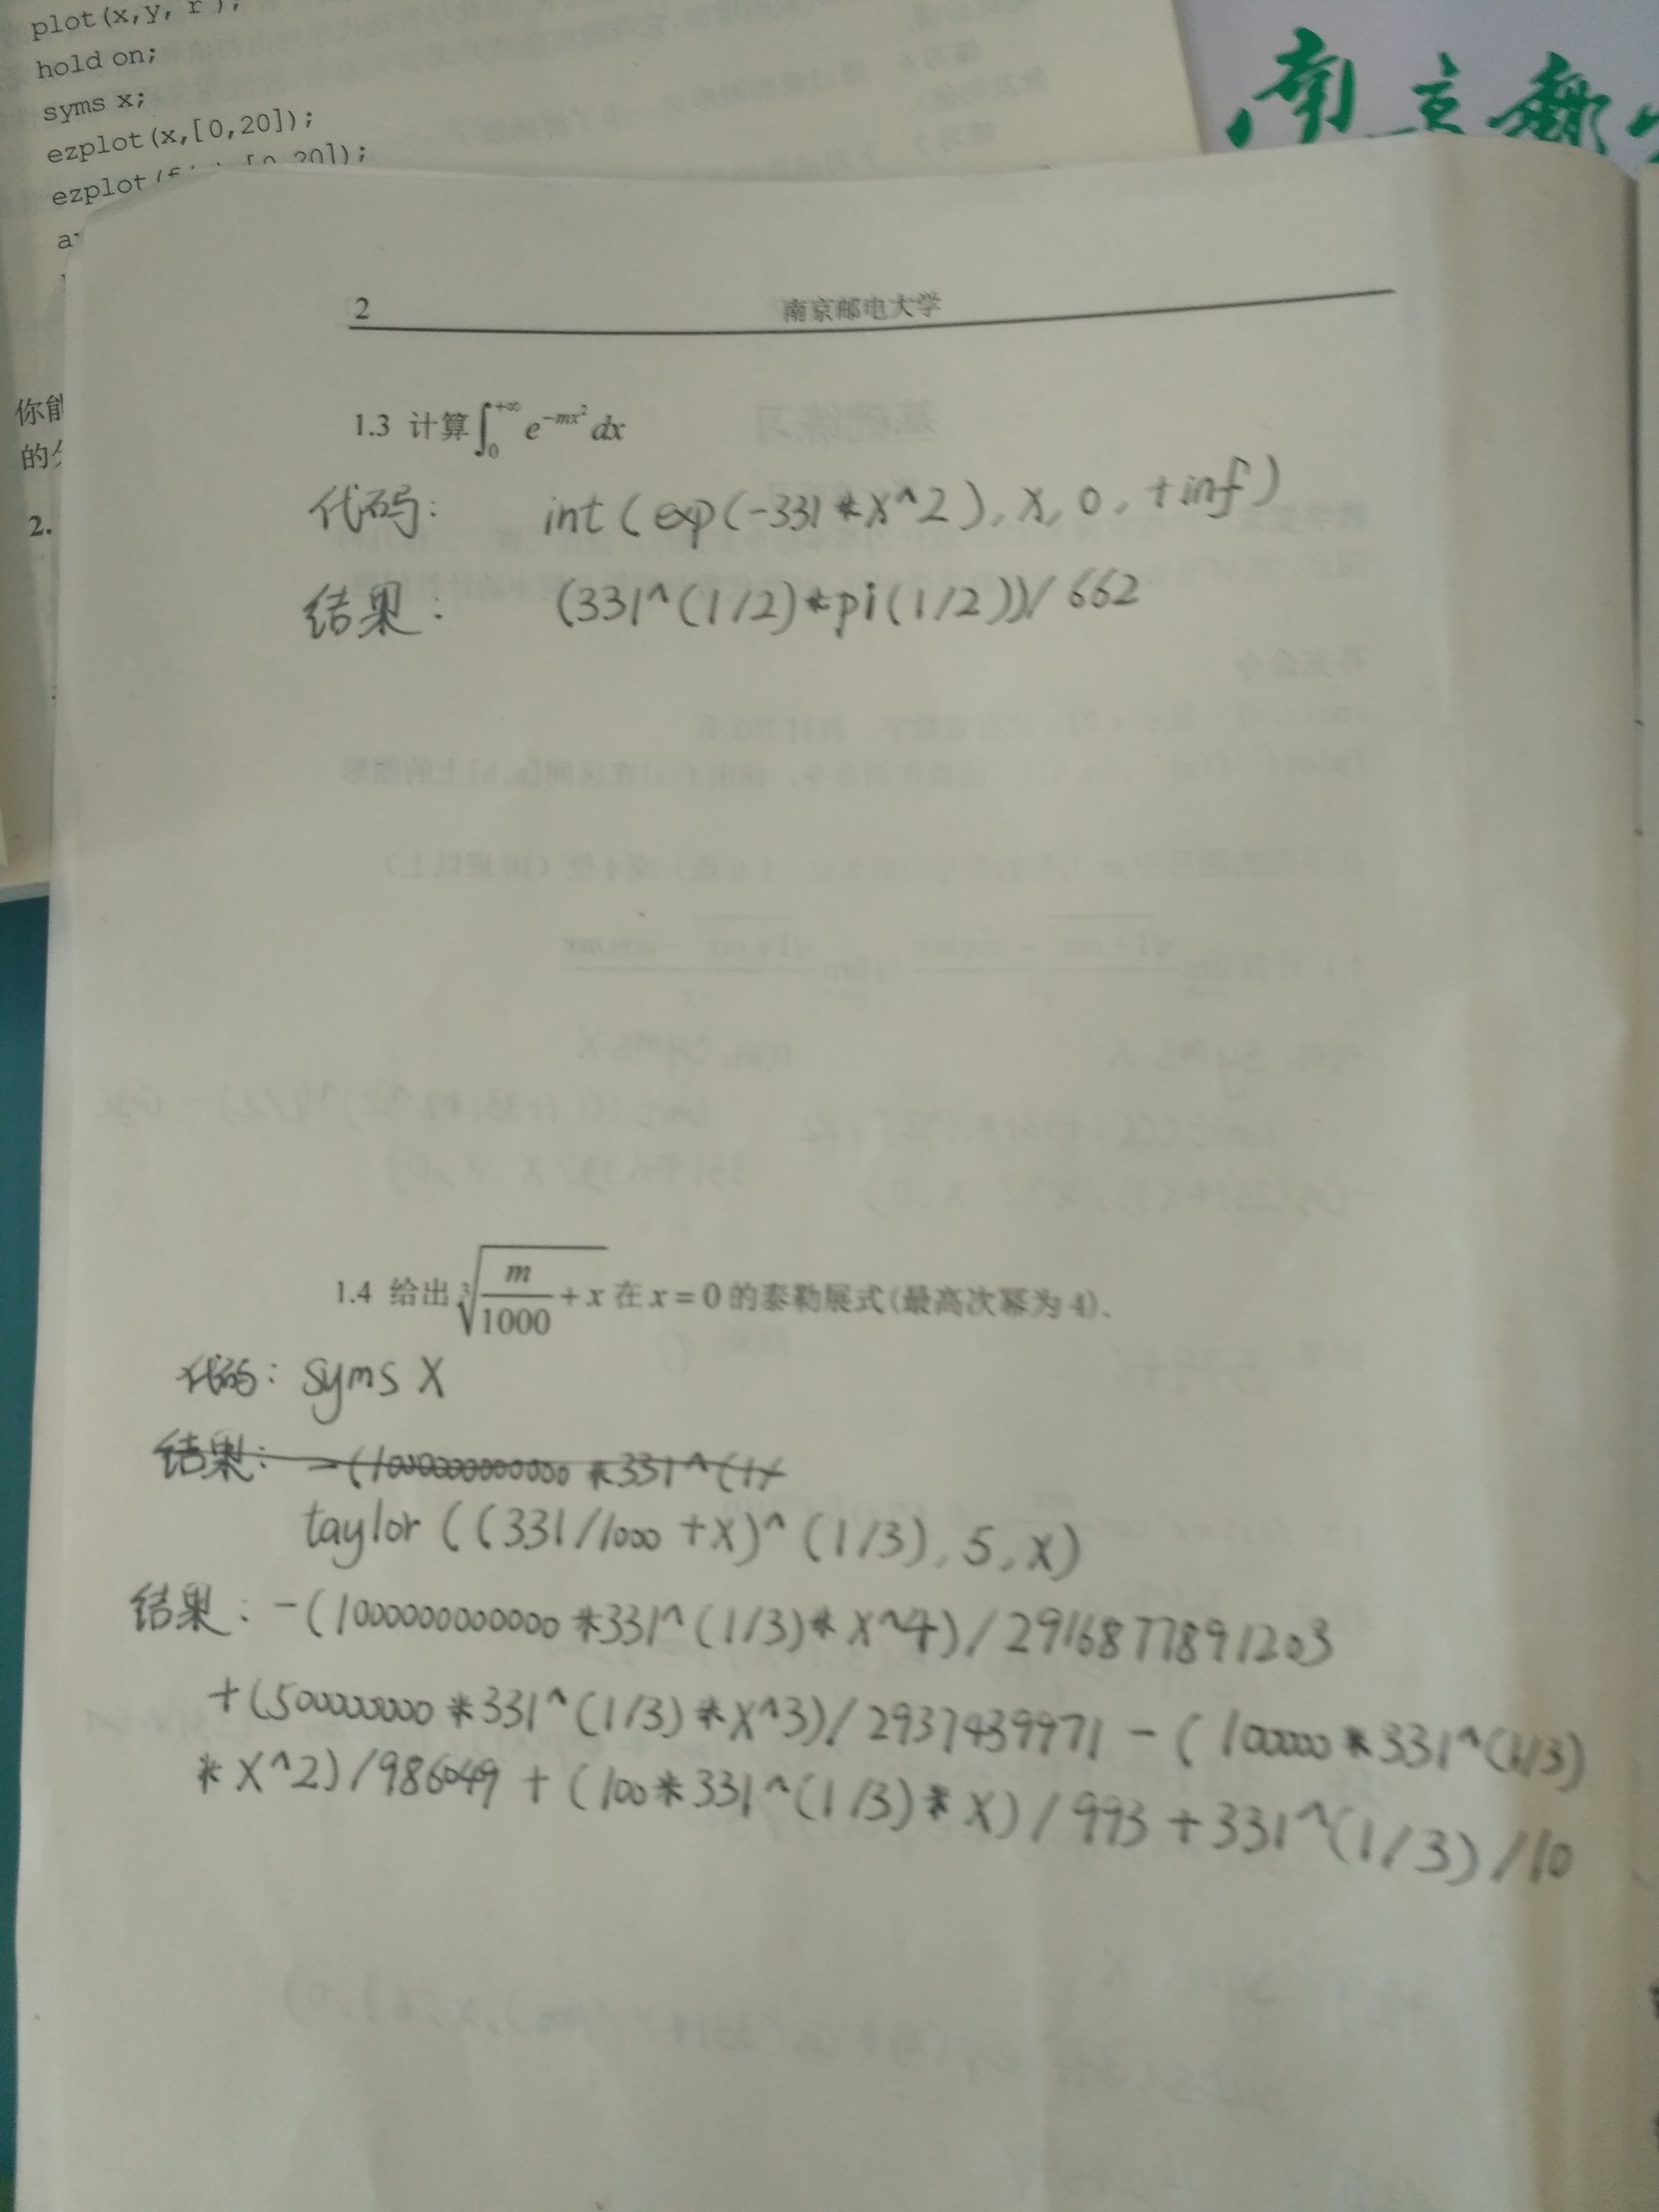 plot(x,y,'r');
hold on;
syms x;
ezplot(x,[0,20]);
ezplot(f
[0,20]);
你能
的分
2.
南京邮
2 南京邮电大学
1.3 计算∫₀^{+∞} e^{-mx²} dx
代码: int(exp(-331*x^2),x,0,+inf)
结果: (331^(1/2)*pi(1/2))/662
1.4 给出 ∛(m/1000 + x) 在 x = 0 的泰勒展式(最高次幂为 4)、
代码: syms x
结果: -(1000000000000 *331^(1/
taylor((331/1000 +x)^(1/3),5,x)
结果: -(1000000000000 *331^(1/3)*x^4)/2916877891203
+(500000000 *331^(1/3)*x^3)/2937439971 - (100000*331^(1/3)
*x^2)/986049 + (100*331^(1/3)*x)/993 + 331^(1/3)/10